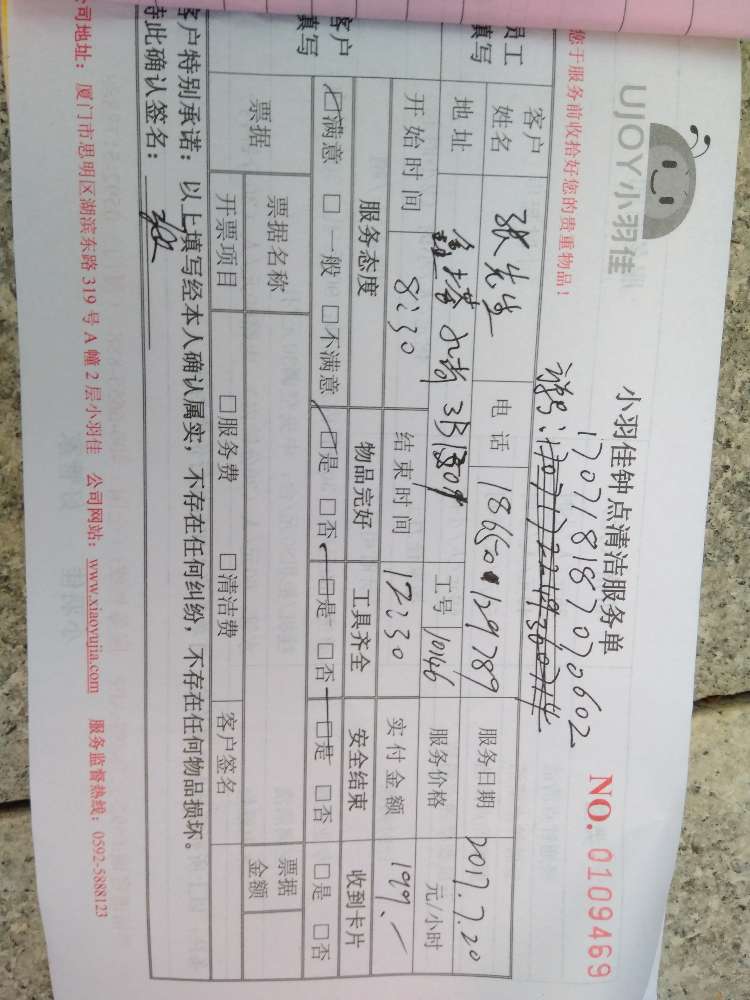 UJOY小羽佳
小羽佳钟点清洁服务单
NO. 0109469
您于服务前收拾好您的贵重物品！
17071818707060​2
员工填写
客户姓名 张先生 电话 服务日期 2017.7.20
地址 工号 10146 服务价格 元/小时
开始时间 8:30 结束时间 12:30 实付金额 199.-
客户填写
服务态度 物品完好 工具齐全 安全结束 收到卡片
☑满意 □一般 □不满意 ☑是 □否 ☑是 □否 ☑是 □否 □是 □否
票据 票据名称 票据金额
开票项目 □服务费 □清洁费 客户签名
客户特别承诺：以上填写经本人确认属实，不存在任何纠纷，不存在任何物品损坏。
特此确认签名：
公司地址：厦门市思明区湖滨东路 319 号 A 幢 2 层小羽佳 公司网站：www.xiaoyujia.com 服务监督热线：0592-5888123